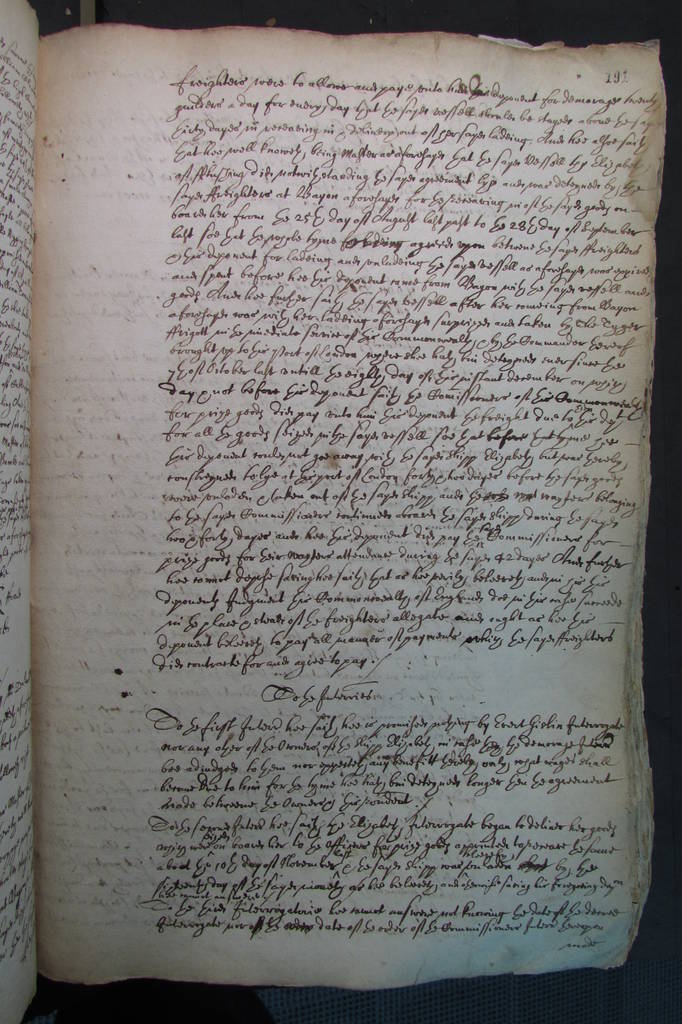 191
freighters were to allowe and paye unto him this deponent for demorage twenty
guilders a day for every day that the sayd vessell should be stayed above the sayd
thirty dayes in receaving in & delivery out of her sayd ladeing. And hee alsoe saith
that hee well knoweth, being Master as aforesayd that the sayd vessell the Elizabeth
of did notwithstanding the sayd agreement lye and was deteyned by the
sayd ffreighters at Bayon aforesayd for the receaving in of the sayd goods on
board her from the 25th day of August last past to the 28th day of September
last soe that the whole tyme for ladeing agreed upon betweene the sayd ffreighters
& this deponent for ladeing and unladeing the sayd vessell as aforesayd was expired
and spent before hee this deponent came from Bayon with the sayd vessell and
goods. And hee further saith the sayd vessell after her comeing from Bayon
aforesayd was with her ladeing aforesayd surprized and taken by the Tyger
ffrigott in the imediate service of this Commonwealth, & by the Commander thereof
brought up to this port of London where shee hath bin deteyned ever since the
7th of October last untill the eighth day of this instant december on which
day & not before this deponent saith the Comissioners of this Commonwealth
for prize goods did pay unto him this deponent the freight due to this dep.t
for all the goods seized in the sayd vessell soe that before that tyme hee
this deponent could not goe away with the sayd shipp Elizabeth but was thereby
constreyned to lye at this port of London forty two dayes before the sayd goods
were unladen & taken out of the sayd shipp, and the wayters belonging
to the sayd Commissioners continued aboard the sayd shipp during the sayd
two & forty dayes and hee this deponent did pay the sayd Commissioners for
prize goods for their wayters attendance during the sayd 42 dayes And further
hee cannot depose saving hee saith that as hee verily beleeveth and in this
deponents Judgment this Commonwealth of England doe in this case succeede
in the place & stead of the freighters allegate and ought as hee this
deponent beleeveth to pay all manner of payments which the sayd ffreighters
did contracte for and agree to pay./
To the Interries
To the first Interrie hee saith hee is promised nothing by Evert Interrogate
nor any other of the Owners of the shipp Elizabeth in case the demorage
bee adjudged to them nor expecteth any benefitt thereby, only what wages shall
become due to him for the tyme hee hath bin deteyned longer then the agreement
made betweene the Owners & this rendent./
To the second Interrie hee saith the Elizabeth Interrogate began to deliver her goods
which were on board her to the Officers for prize goods appointed to receave the same
about the 10th day of November last & the sayd shipp was unladen by the
sixteenth day of the sayd moneth as hee beleeveth, and otherwise saving his foregoing depon
hee cannot answer
To the third Interrogatorie hee cannot answere not knowing the date of the decree
Interrogate nor of the date of the order of the Commissioners Interr thereupon
made